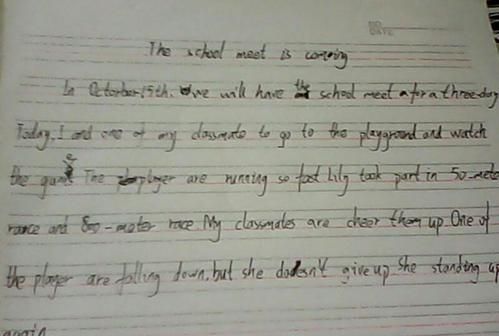 DATE
The school meet is comming
In Octorber 15th. we will have the school meet a for a three-day
Today, I and one of my classmate to go to the playground and watch
the game The player are running so fast Lily took part in 50-mete
rance and 800-meter race My classmates are cheer them up One of
the player are falling down, but she dodesn't give up. She standing up
again